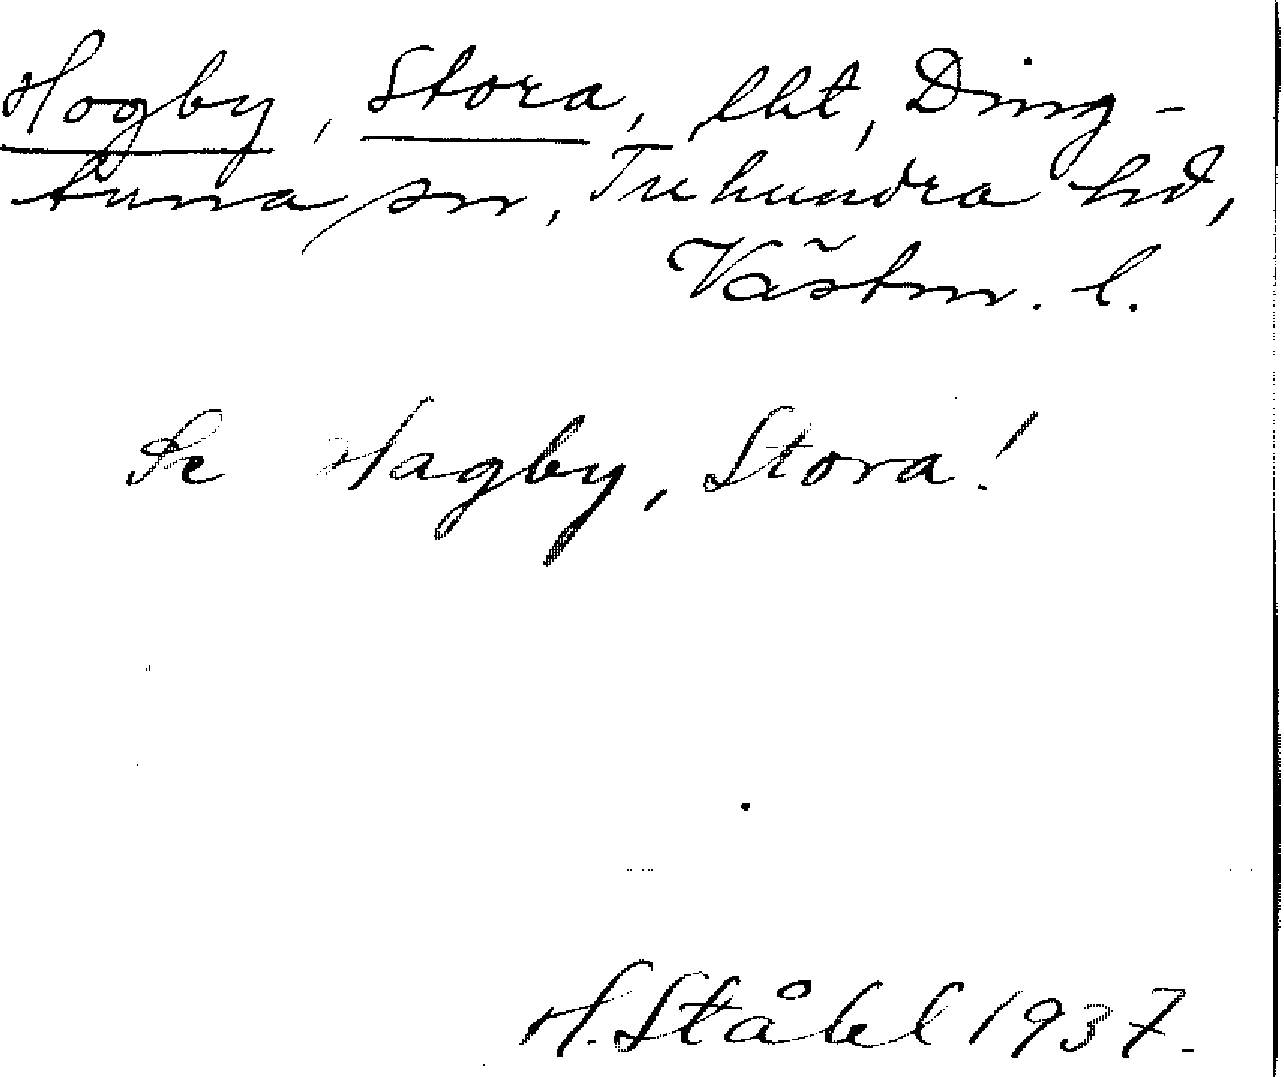 Hogby, Stora, lht, Ding-
tuna sn, Tuhundra hd,
Västm. l.
Se Hagby, Stora!
H. Ståhl 1937.